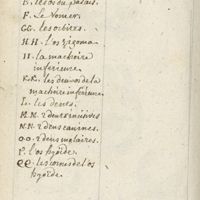 E. les os du palais.
F. Le Vomer.
GG. les orbites.
H.H. l'os zigoma
II. la machoire
inferieure.
K.K. les dens de la
machoire inferieure.
L. les dents.
M.M. 2 dens incisives
N.N. 2 dens canines.
O.O. 2 dens molaires.
P. l'os hyoïde.
QQ. les cornes de l'os
hyoïde.